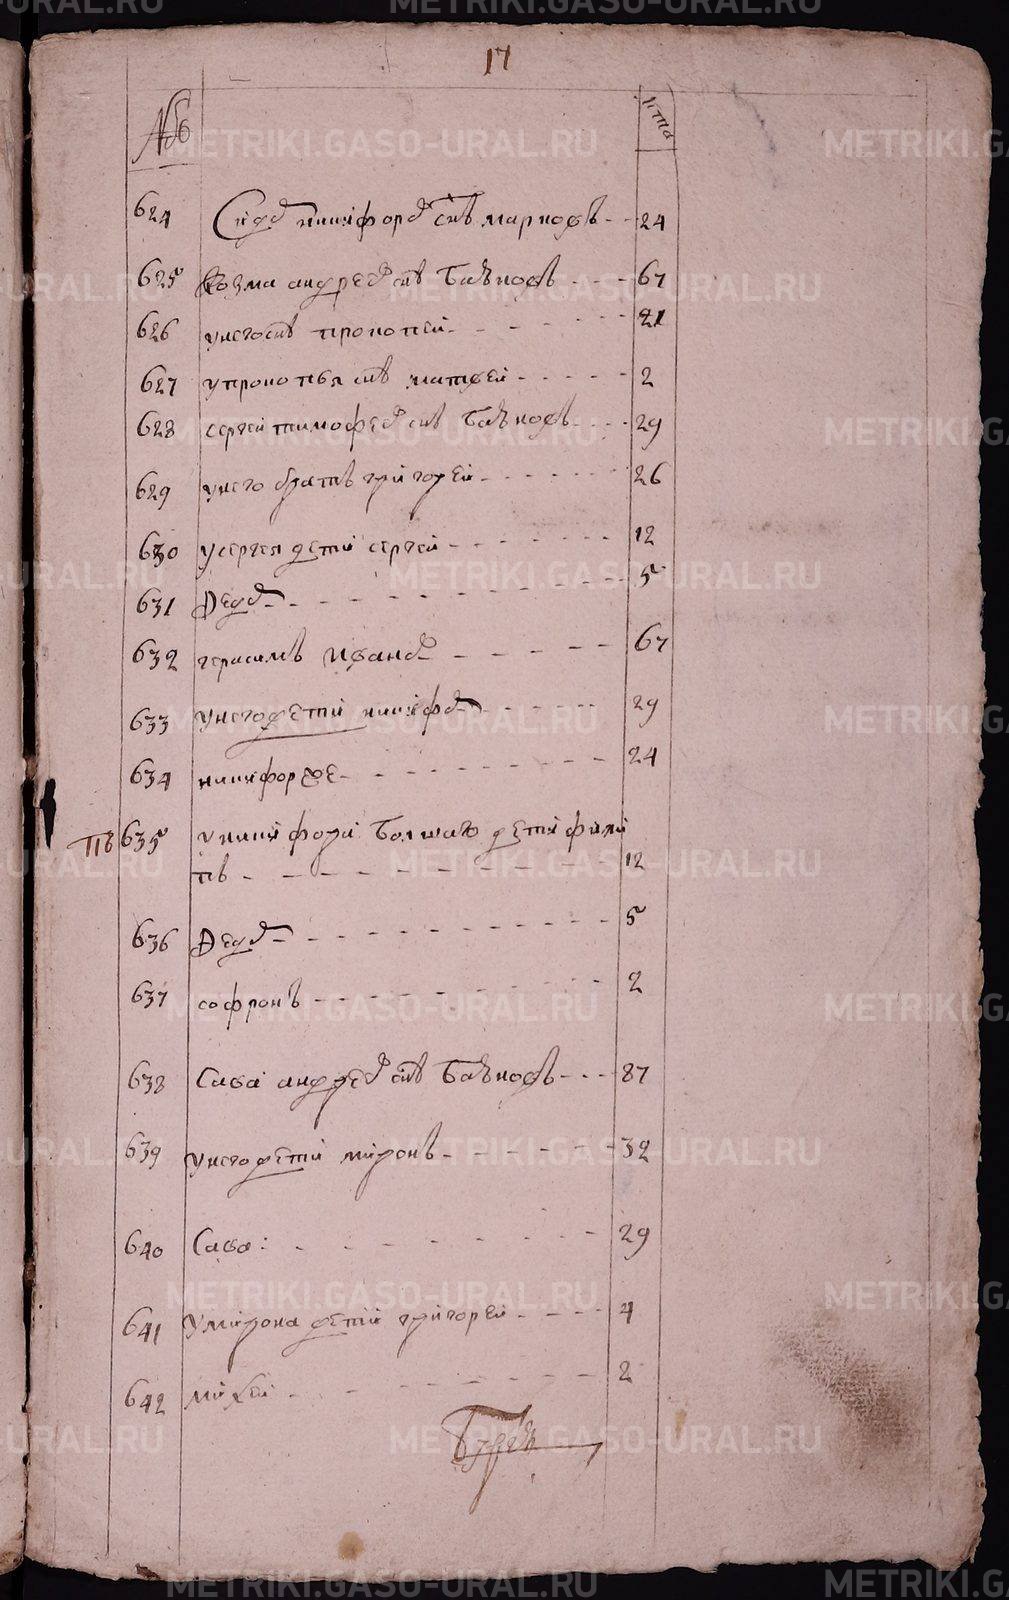 17
№ лѣта
624 никифоръ снъ марковъ 24
625 Козма андреевъ снъ 67
626 унего снъ прокопей 21
627 упрокопья снъ матвей 2
628 сергей тимофеевъ снъ 29
629 унего братъ григорей 26
630 усергея дети сергей 12
631 Федоръ 5
632 герасимъ Ивановъ 67
633 унего дети никифоръ 29
634 никифоръ же 24
635 уникифора болшаго дети фили
пъ 12
636 Федоръ 5
637 софронъ 2
638 Сава андреевъ снъ 87
639 унего дети миронъ 32
640 Сава: 29
641 Умирона дети григорей 4
642 михей 2
METRIKI.GASO-URAL.RU